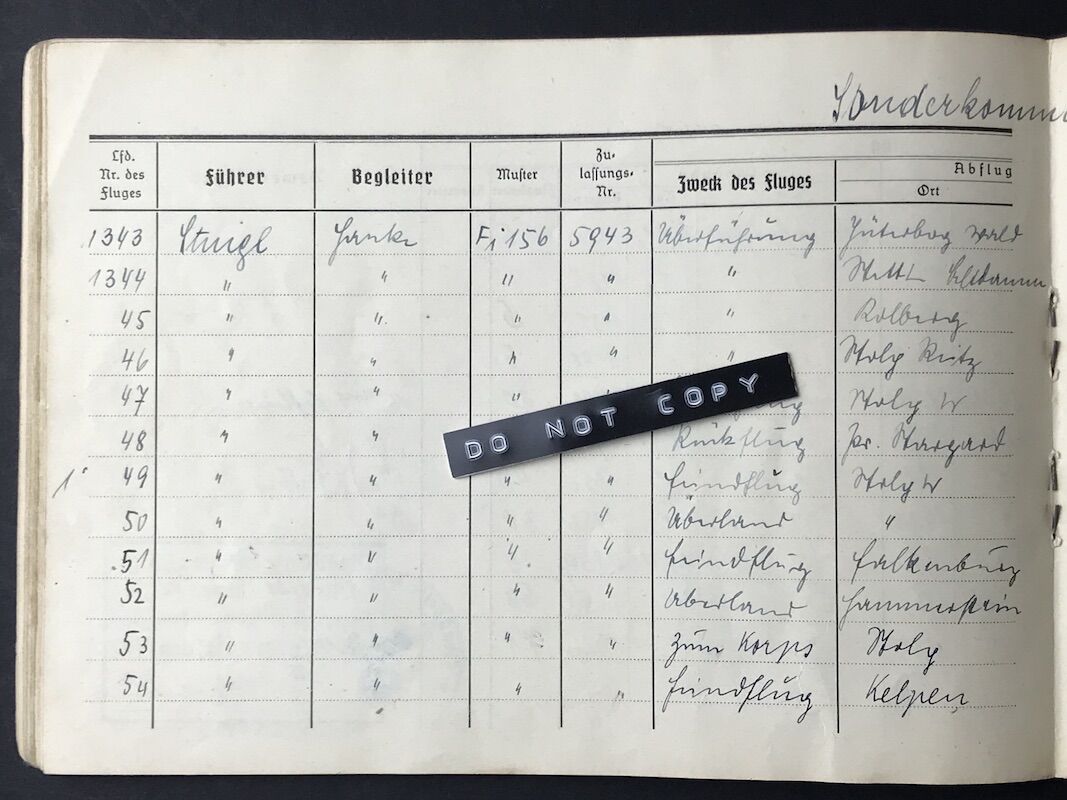 Sonderkomm
Lfd. Nr. des Fluges Führer Begleiter Muster Zu-lassungs-Nr. Zweck des Fluges Abflug Ort
1343 Fi 156 5943 Überführung Jüterbog
1344 " " " " " Stett
45 " " " " " Kolberg
46 " " " " " Stolp Reitz
47 " " " Stolp W
DO NOT COPY
48 " " Rückflug Pr. Stargard
49 " " " " Feindflug Stolp W
50 " " " " Überland "
51 " " " " Feindflug Falkenburg
52 " " " " Überland Hammerstein
53 " " " " Zum Korps Stolp
54 " " " " Feindflug Kelpen